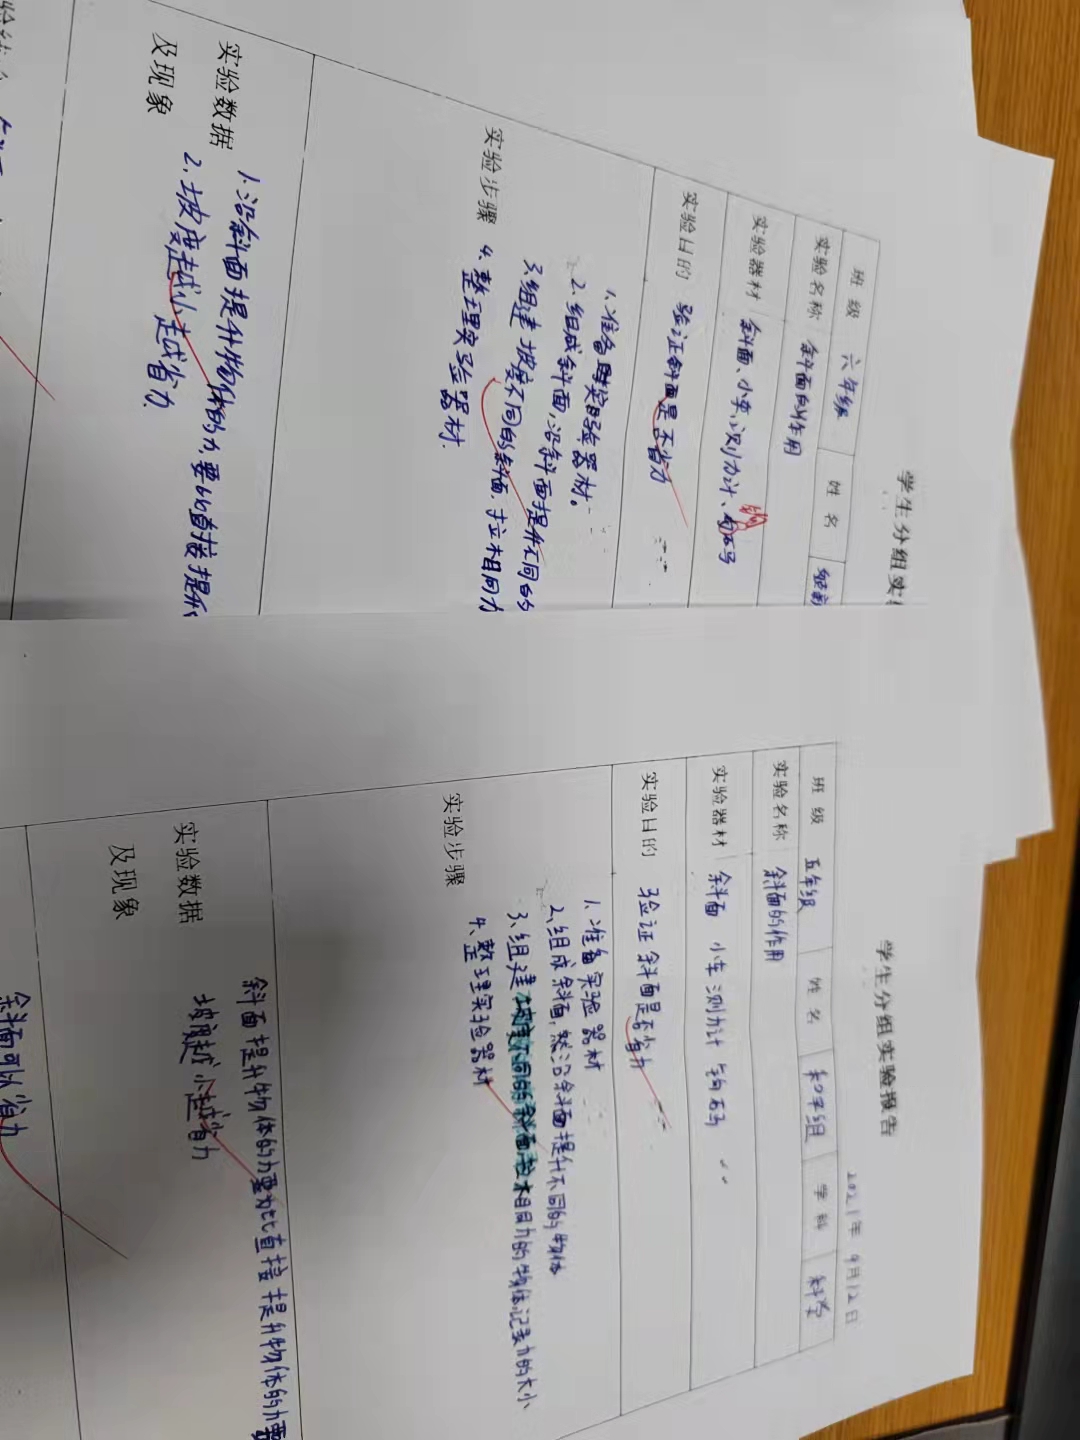 学生分组实
班 级 六年级 姓 名
实验名称 斜面的作用
实验器材 斜面、小车、测力计、钩码
实验目的 验证斜面是否省力
1.准备实验器材。
2.组成斜面,沿斜面提升不同的
实验步骤
3.组建坡度不同的斜面,拉相同
4.整理实验器材.
实验数据
及现象
1.沿斜面提升物体的力,要比直接提升
2.坡度越小越省力.
学生分组实验报告
2021年9月12日
班 级 五年级 姓 名 和平组 学 科 科学
实验名称 斜面的作用
实验器材 斜面 小车 测力计 钩码
实验目的 验证斜面是否省力
1.准备实验器材
2.组成斜面,然沿斜面提升不同的物体
实验步骤
3.组建坡度不同的斜面,拉相同力的物体,记录力的大小
4.整理实验器材
实验数据
及现象
斜面提升物体的力要比直接提升物体的力要
坡度越小越省力
斜面可以省力